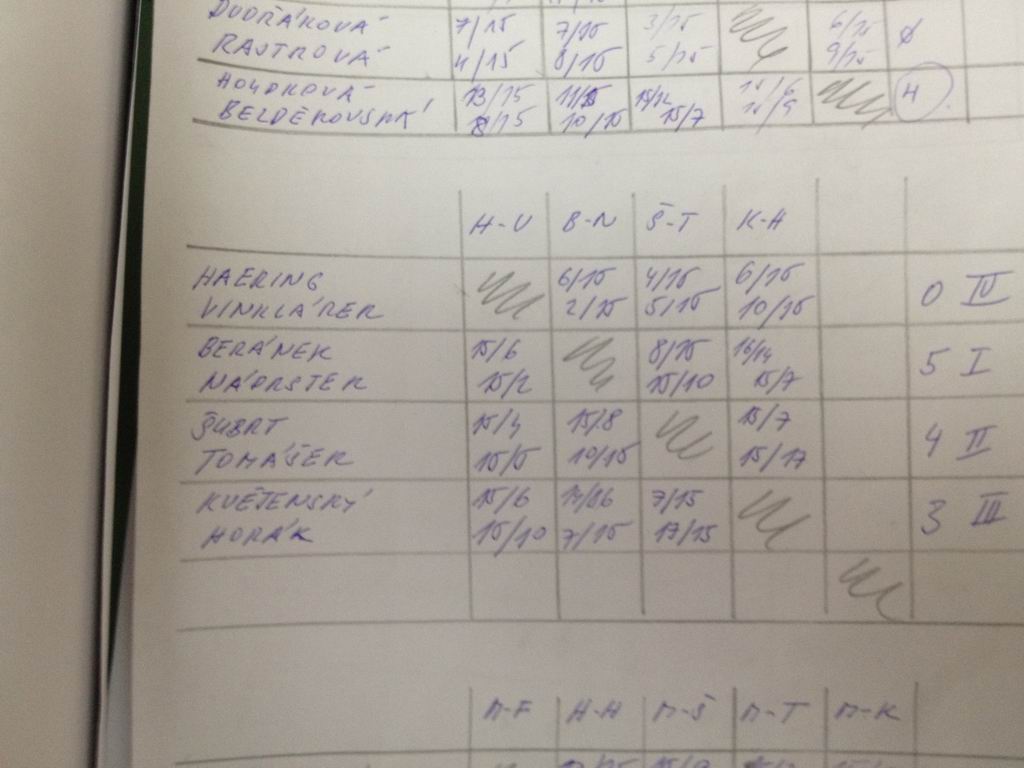 DVOŘÁKOVÁ 7/15 7/15 3/15 6/15 0
RAJTROVÁ 4/15 8/15 5/15 9/15
13/15 11/15 15/12 H
8/15 10/15 15/7
H-V B-N Š-T K-H
HAERING 6/15 4/15 6/15 0 IV
VINKLÁREK 2/15 5/15 10/15
BERÁNEK 15/6 8/15 16/14 5 I
NÁDRSTEK 15/2 15/10 15/7
ŠUBRT 15/4 15/8 15/7 4 II
TOMÁŠEK 15/5 10/15 15/17
KVĚTENSKÝ 15/6 14/16 7/15 3 III
HORÁK 15/10 7/15 17/15
H-H M-Š M-T M-K